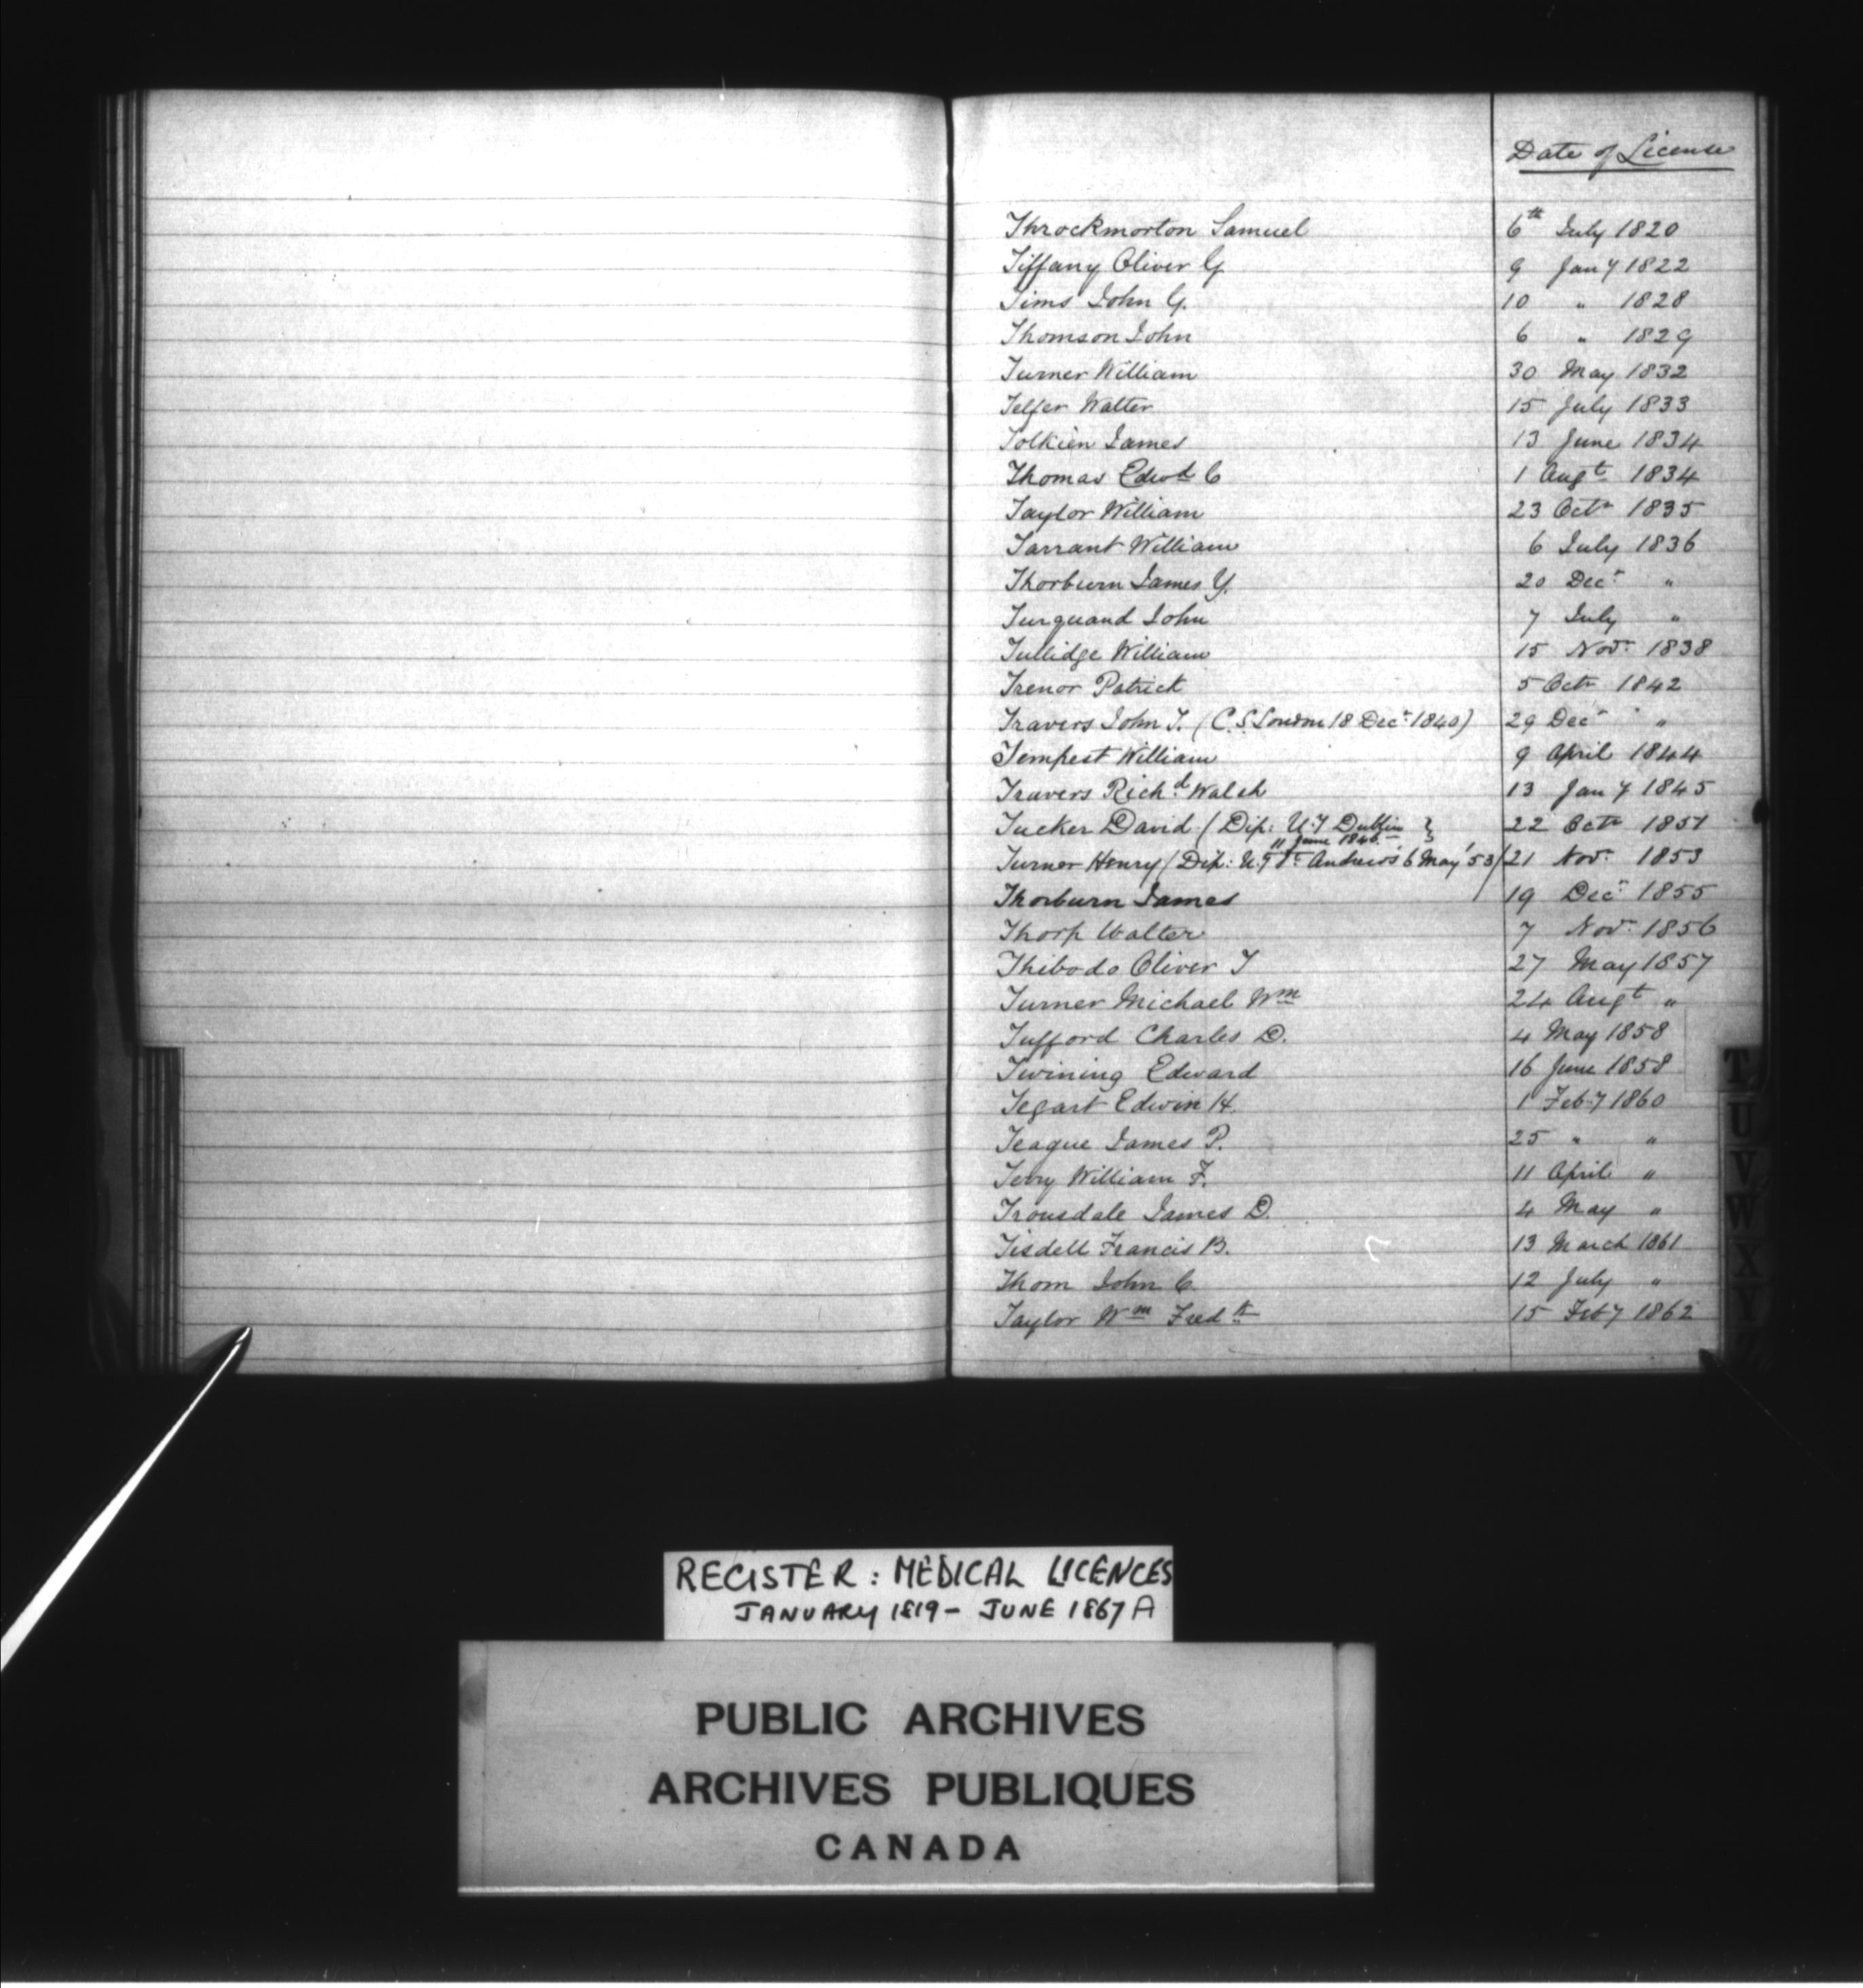 Date of License
Throckmorton Samuel 6th July 1820
Tiffany Oliver G 9 Jany 1822
Tims John G. 10 " 1828
Thomson John 6 " 1829
Turner William 30 May 1832
Telfer Walter 15 July 1833
Tolkien James 13 June 1834
Thomas Edwd C 1 Augt 1834
Taylor William 23 Octr 1835
Tarrant William 6 July 1836
Thorburn James Y. 20 Decr "
Turquand John 7 July "
Tullidge William 15 Novr 1838
Trenor Patrick 5 Octr 1842
Travers John T. (C.S. London 18 Decr 1840) 29 Decr "
Tempest William 9 April 1844
Travers Richd Walsh 13 Jany 1845
Tucker David (Dip: U.y Dublin } 22 Octr 1851
11 June 1846
Turner Henry (Dip: U.y St Andrews 6 May '53) 21 Novr 1853
Thorburn James 19 Decr 1855
Thorp Walter 7 Novr 1856
Thibodo Oliver T 27 May 1857
Turner Michael Wm 24 Augt "
Tufford Charles D. 4 May 1858
Twining Edward 16 June 1858
Tegart Edwin H. 1 Feby 1860
Teague James P. 25 " "
William F. 11 April "
Trousdale James D. 4 May "
Tisdell Francis B. 13 March 1861
Thom John C. 12 July "
Taylor Wm Fredk 15 Feby 1862
T.
U
V
W
X
Y
REGISTER: MEDICAL LICENCES
JANUARY 1819 - JUNE 1867 A
PUBLIC ARCHIVES
ARCHIVES PUBLIQUES
CANADA